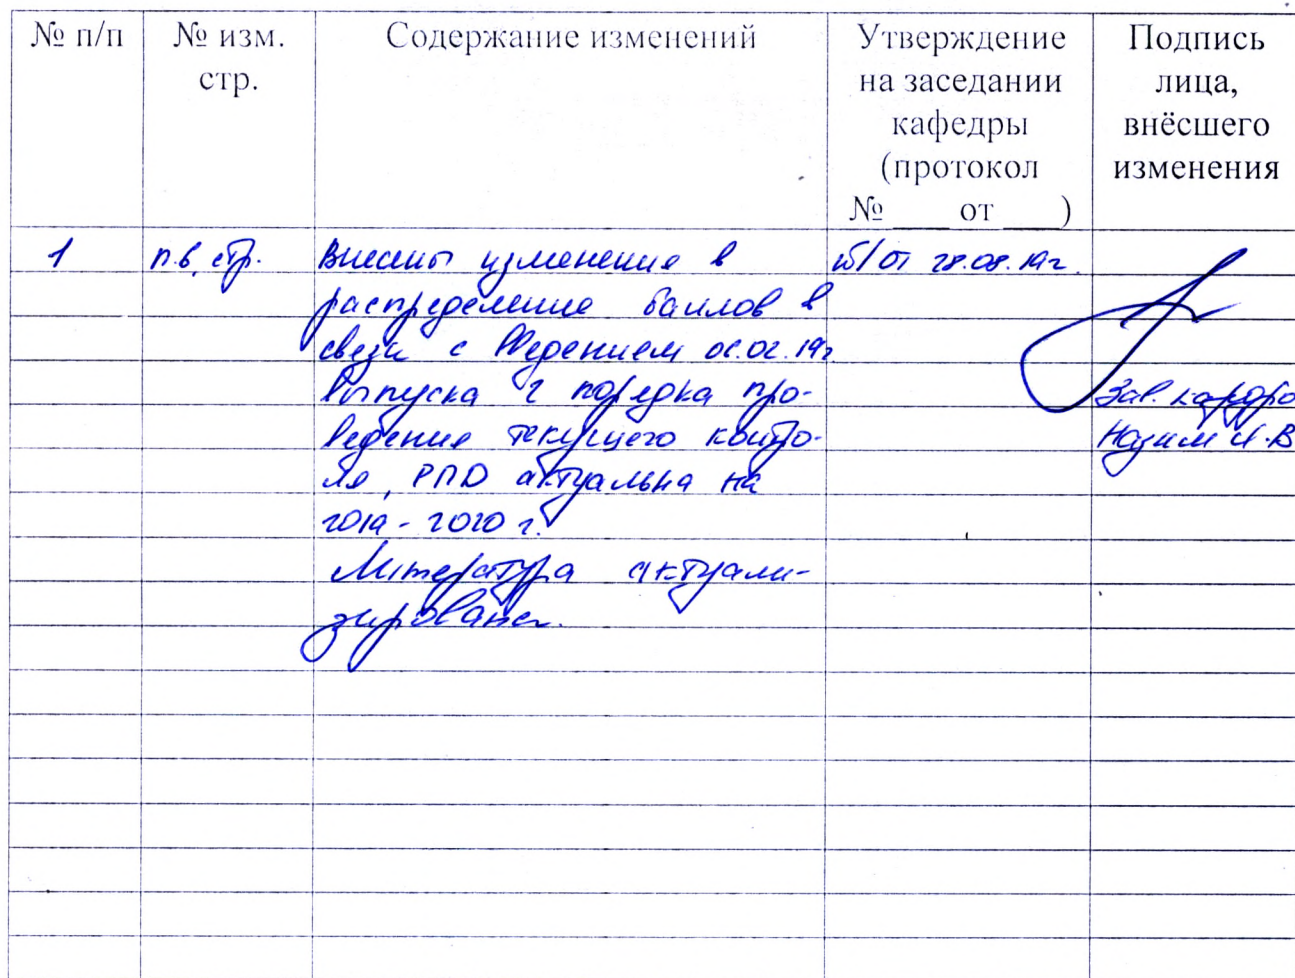 № п/п
№ изм.
стр.
Содержание изменений
Утверждение
на заседании
кафедры
(протокол
№ ___ от ___ )
Подпись
лица,
внёсшего
изменения
1
п.6, стр.
Внесены изменение в
распределение баллов в
связи с Введением 01.02.19г
Выпуска 2 порядка про-
ведение текущего контро-
ля, РПД актуальна на
2019-2020 г.
Литература актуали-
зирована.
от 28.08.19г.
Зав. кафедро